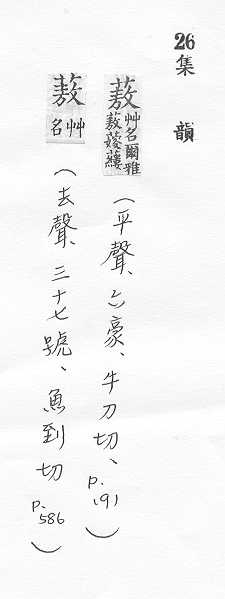 26集韻
蔜艸名爾雅蔜𦿆䕅（平聲、六豪、牛刀切、p.191）
蔜艸名（去聲、三十七號、魚到切 p.586）